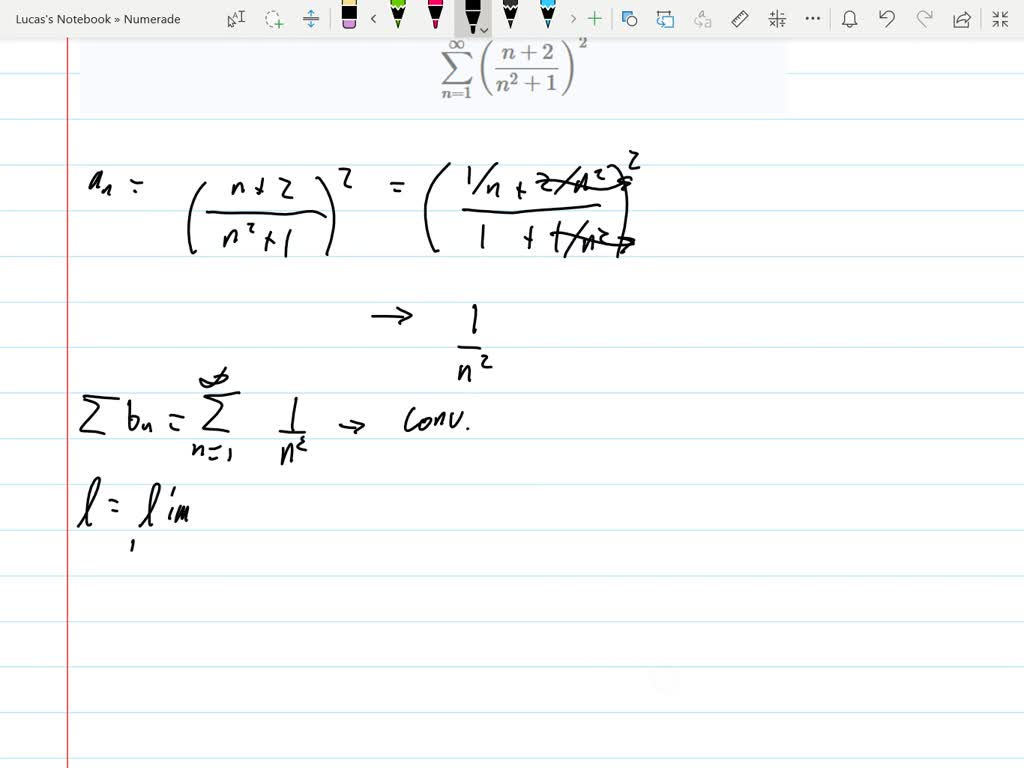 Lucas's Notebook » Numerade
∞ ∑ n=1 ( (n + 2) / (n² + 1) )²
aₙ = ( (n + 2) / (n² + 1) )² = ( (1/n + 2/n²) / (1 + 1/n²) )²
→ 1 / n²
∑ bₙ = ∞ ∑ n=1 1 / n² → conv.
l = lim